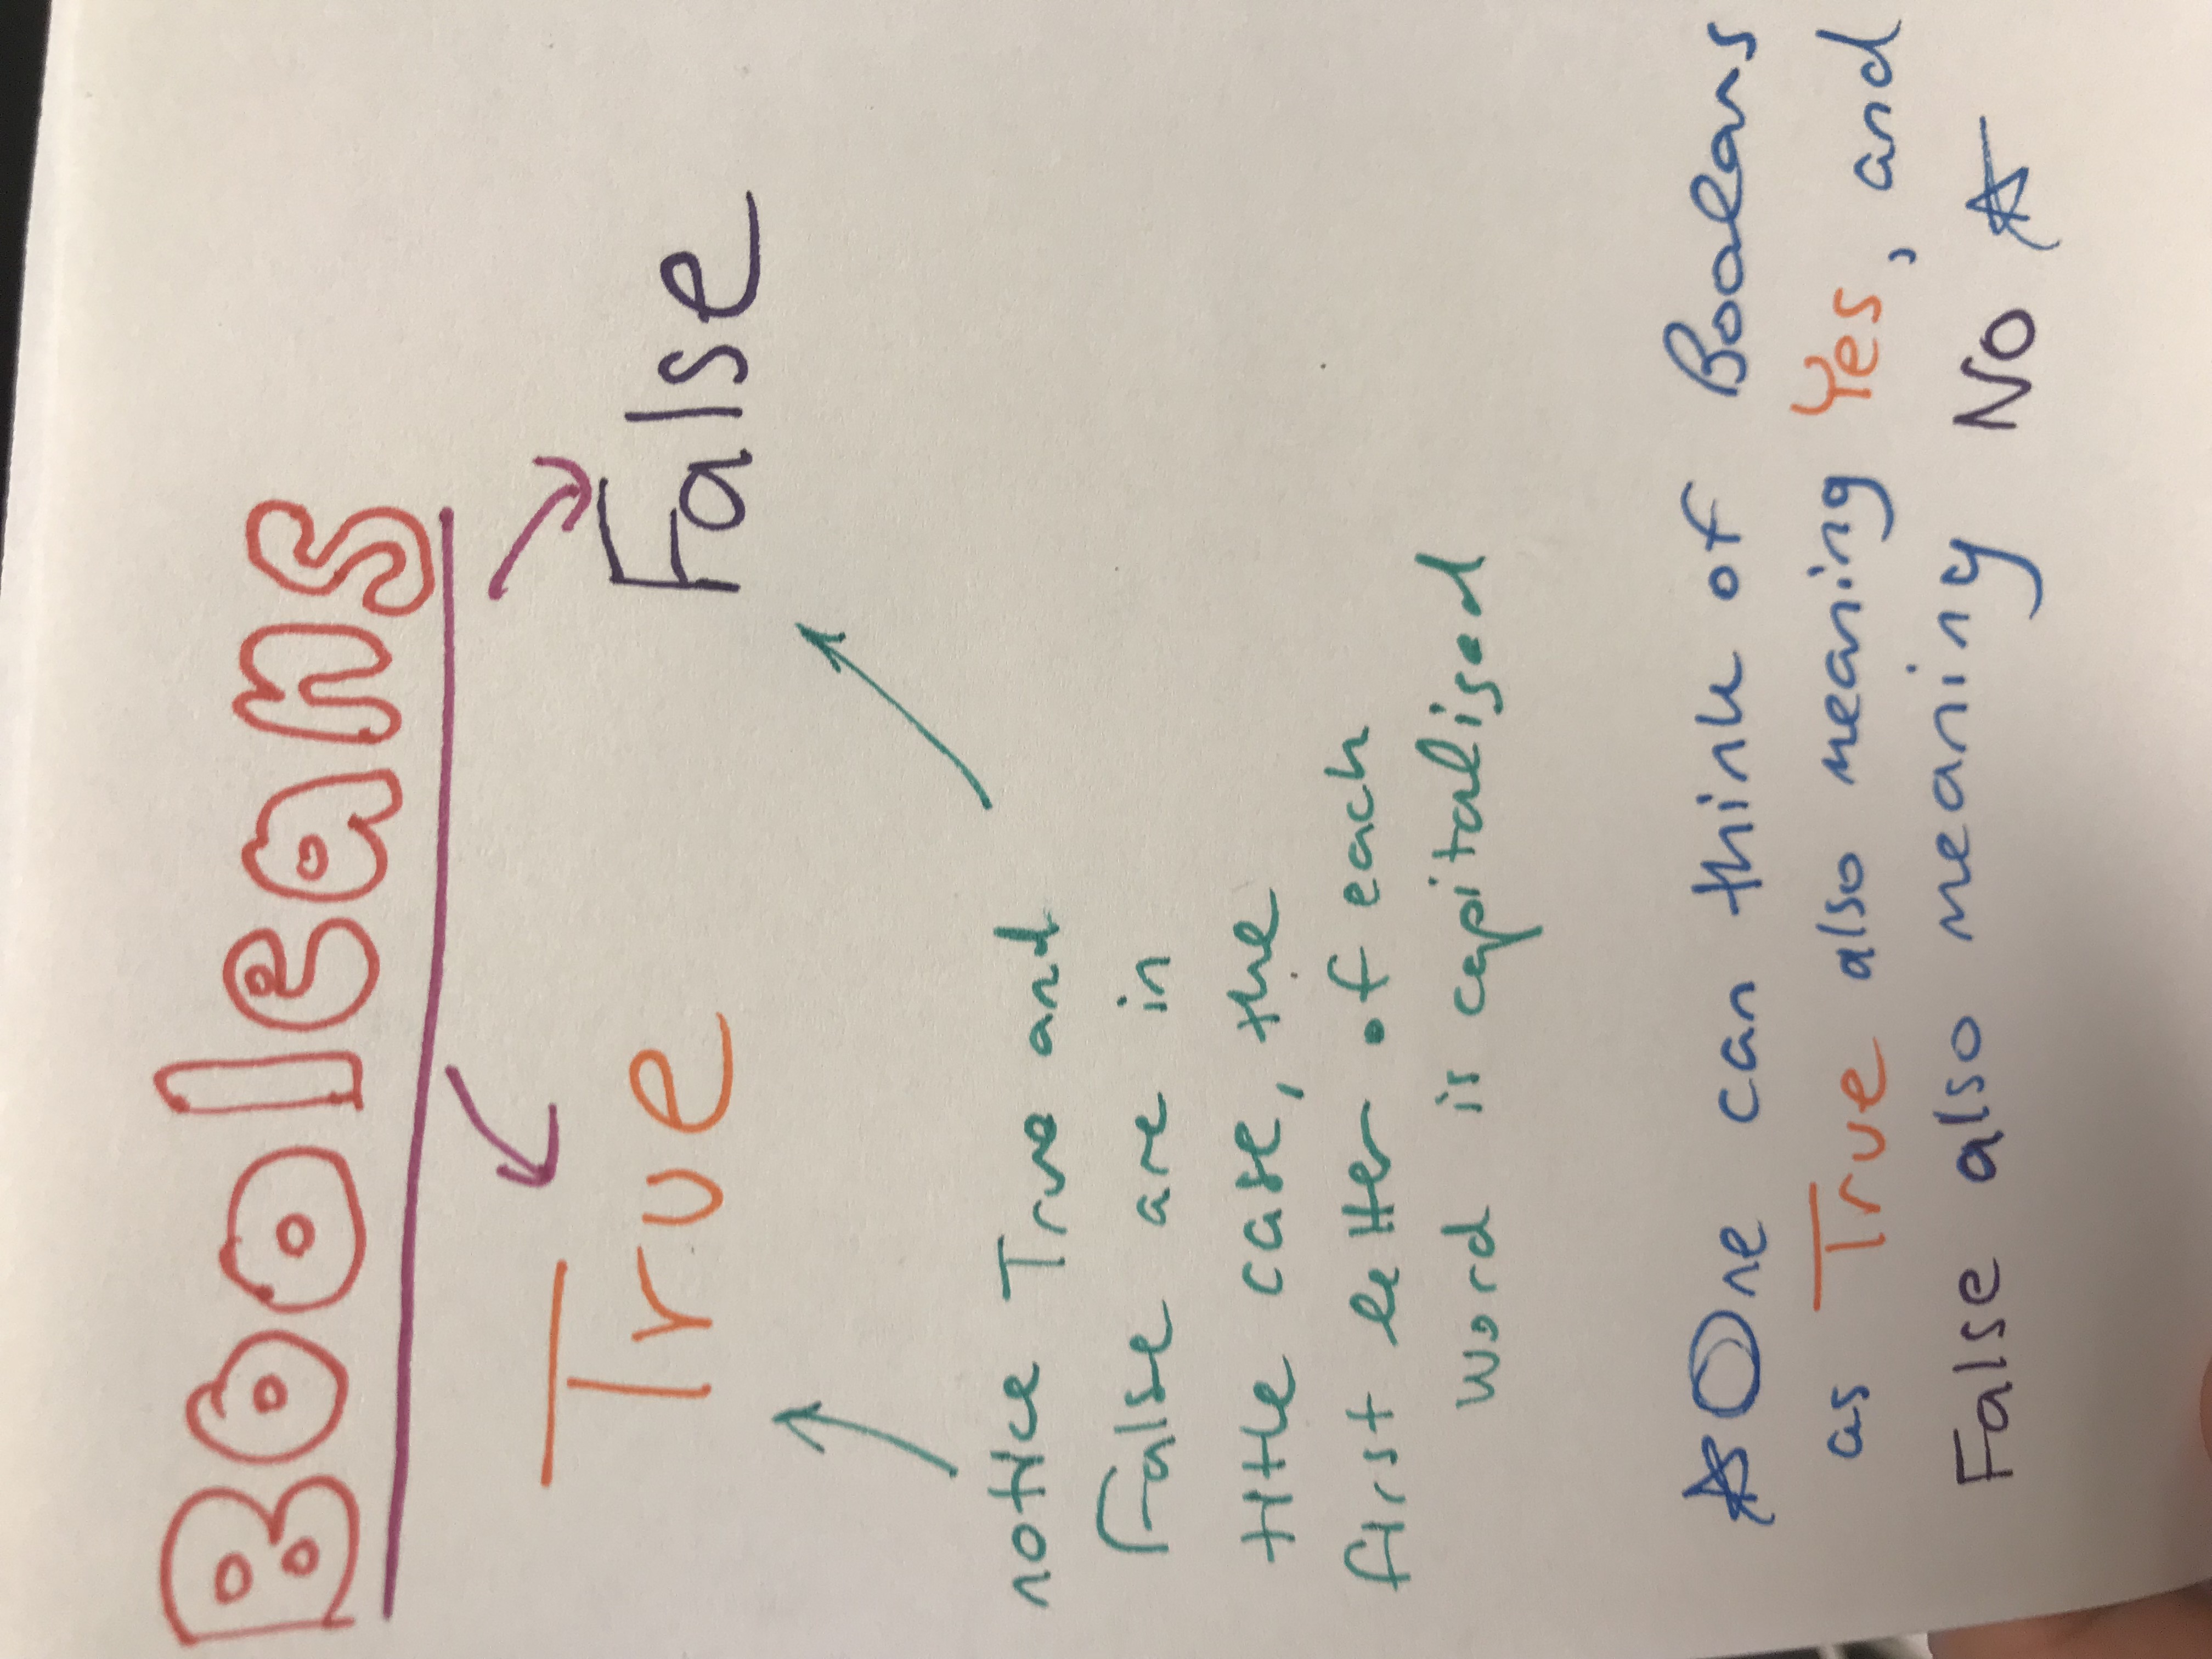 Booleans
True False
notice True and
False are in
title case, the
first letter of each
word is capitalised
☆ One can think of Booleans
as True also meaning Yes, and
False also meaning No ☆